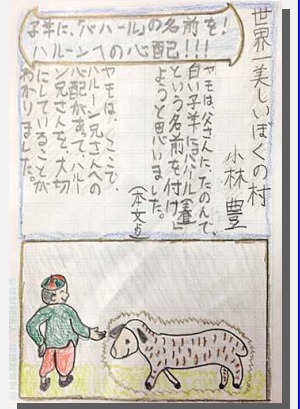 世界一美しいぼくの村
小林 豊
子羊に、「バハール」の名前を！
ハルーンへの心配！！！
ヤモは、父さんに、たのんで、
白い子羊に「バハール（春）」
という名前を付け
ようと思いました。
（本文より）
ヤモは、ここで、
ハルーン兄さんへの
心配があって、ハルー
ン兄さんを、大切
にしていることが
わかりました。